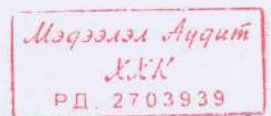 Мэдээлэл Аудит
ХХК
РД. 2703939